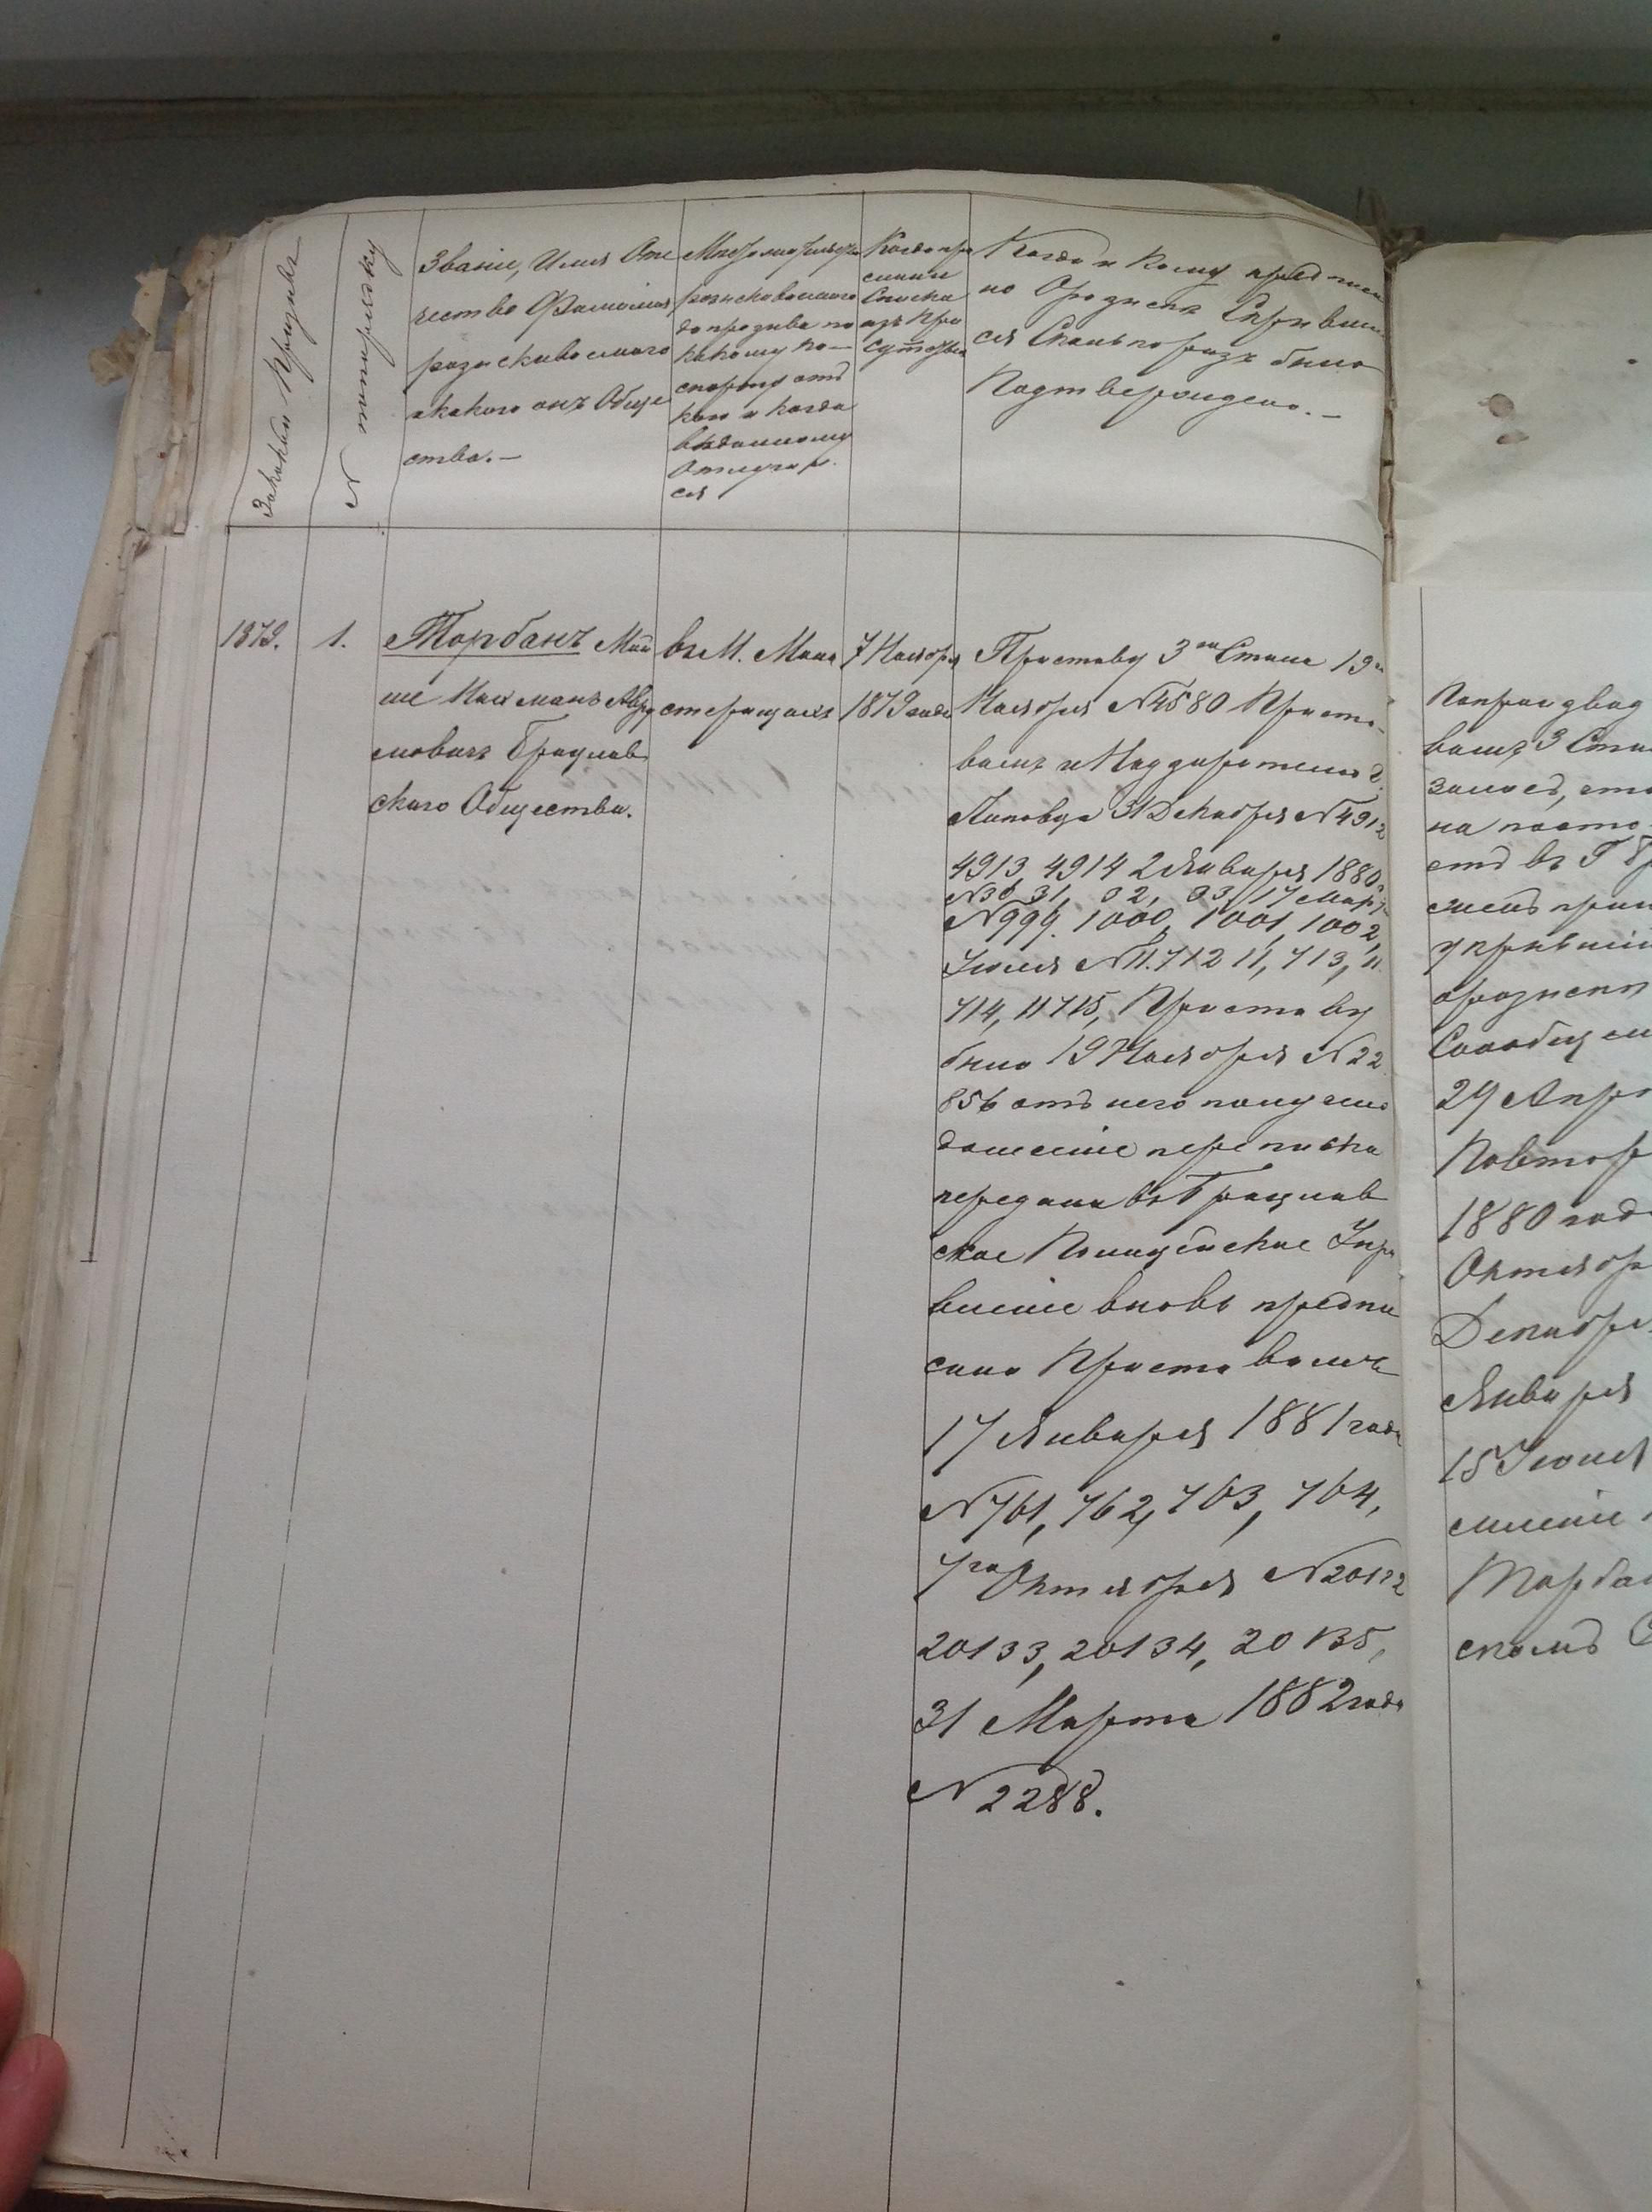 За какой Призывъ
№ по списку
Званіе, Имя Оте
чество Фамилія
разыскиваемаго
и какого онъ Обще
ства.—
Мѣстожительство
разыскиваемаго
до призыва по
какому па—
спорту отъ
кого и когда
выданному
Отлучил
ся
Когда при
сланы
Списки
изъ При
сутствія
Когда и Кому предписа
но О розыскѣ Скрывш
ся Сколько разъ было
Подтверждено.—
1879.
1.
Торбанъ Мой
ше Нахманъ Авру
мовичъ Брацлав
скаго Общества.
въ М. Мона
стерищахъ
7 Ноября
1879 года
Приставу 3го Стана 19го
Ноября №4580 Приста
вамъ и Надзирателю г.
Липовца 31 Декабря №4912
4913, 4914 2 Января 1880г
№30 31, 32, 33, 17 Марта
№999. 1000, 1001, 1002,
Іюля №11.712 11,713, 11
714, 11715, Приставу
было 19 Ноября №22
856 отъ него получено
донесеніе переписка
передана въ Брацлав
ское Полицейское Упра
вленіе вновь предпи
сано Приставамъ
17 Января 1881 года
№761, 762, 763, 764,
7го Октября №20132
20133, 20134, 20135,
31 Марта 1882 года
№2288.
вамъ 3 Ста
на
отъ въ Г
29 Апр
Повтор
1880 года
Октябр
Декабр
Января
15 Іюля
Торба
скомъ